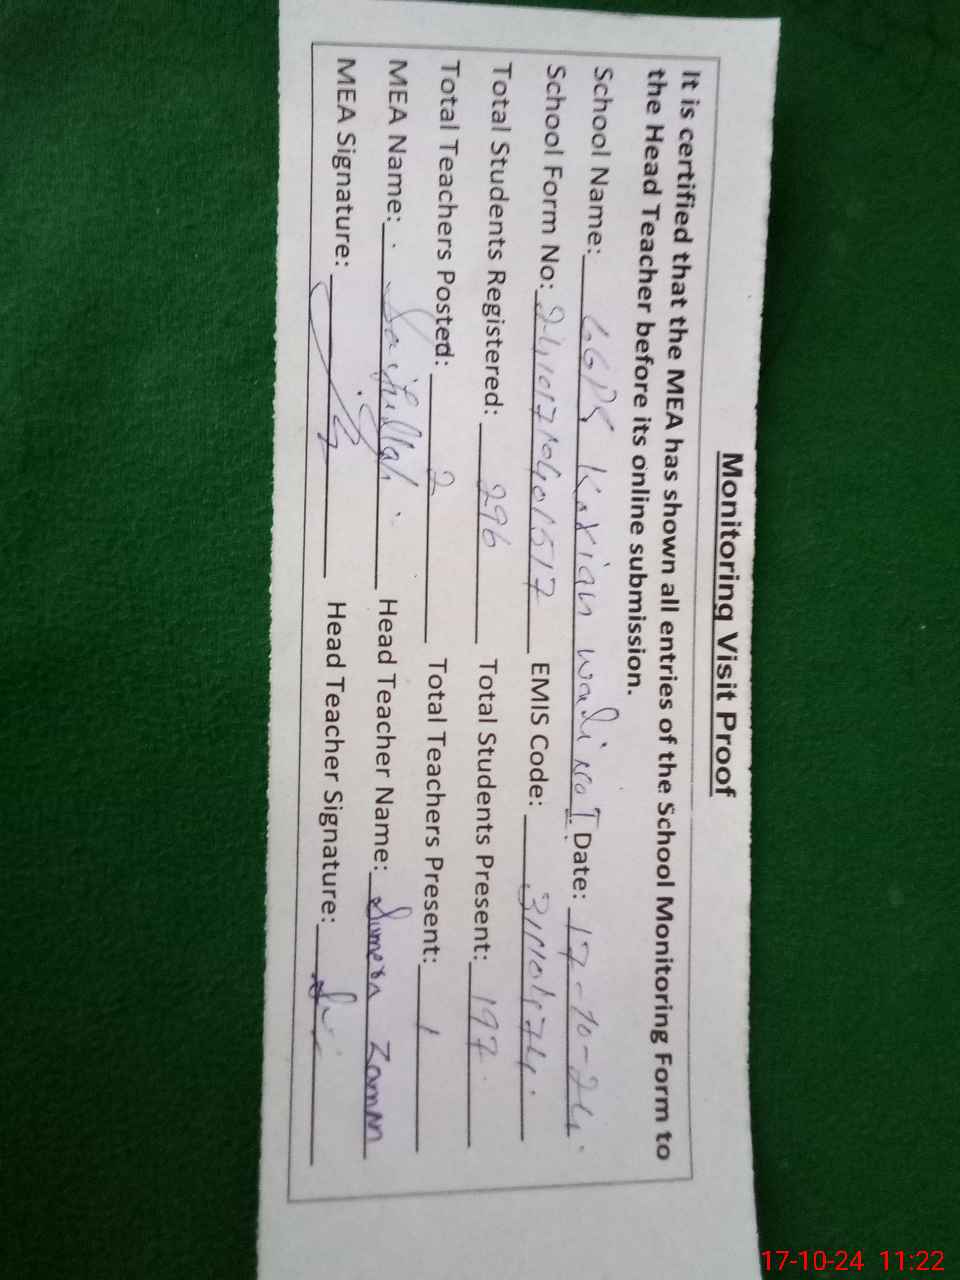 Monitoring Visit Proof
It is certified that the MEA has shown all entries of the School Monitoring Form to
the Head Teacher before its online submission.
School Name: GGPS Kakian wali No I Date: 17-10-24
School Form No: EMIS Code:
Total Students Registered: 296 Total Students Present: 197
Total Teachers Posted: 2 Total Teachers Present: 1
MEA Name: Saifullah Head Teacher Name: Sumera Zaman
MEA Signature: Head Teacher Signature:
17-10-24 11:22